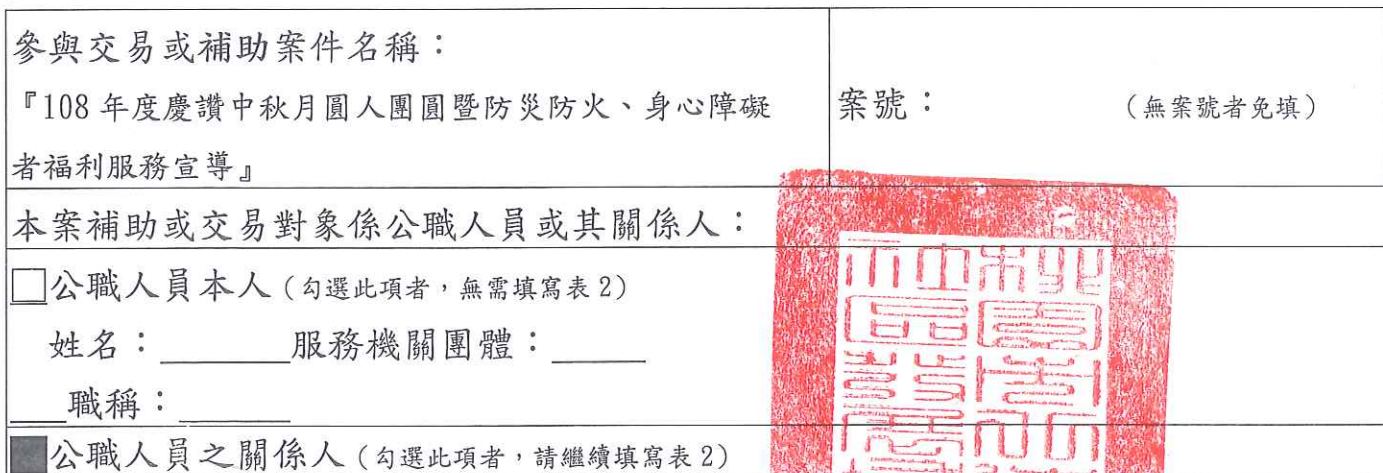 參與交易或補助案件名稱：
『108 年度慶讚中秋月圓人團圓暨防災防火、身心障礙
者福利服務宣導』
案號：　（無案號者免填）
本案補助或交易對象係公職人員或其關係人：
□公職人員本人（勾選此項者，無需填寫表 2）
姓名：______服務機關團體：_____
__職稱：______
■公職人員之關係人（勾選此項者，請繼續填寫表 2）